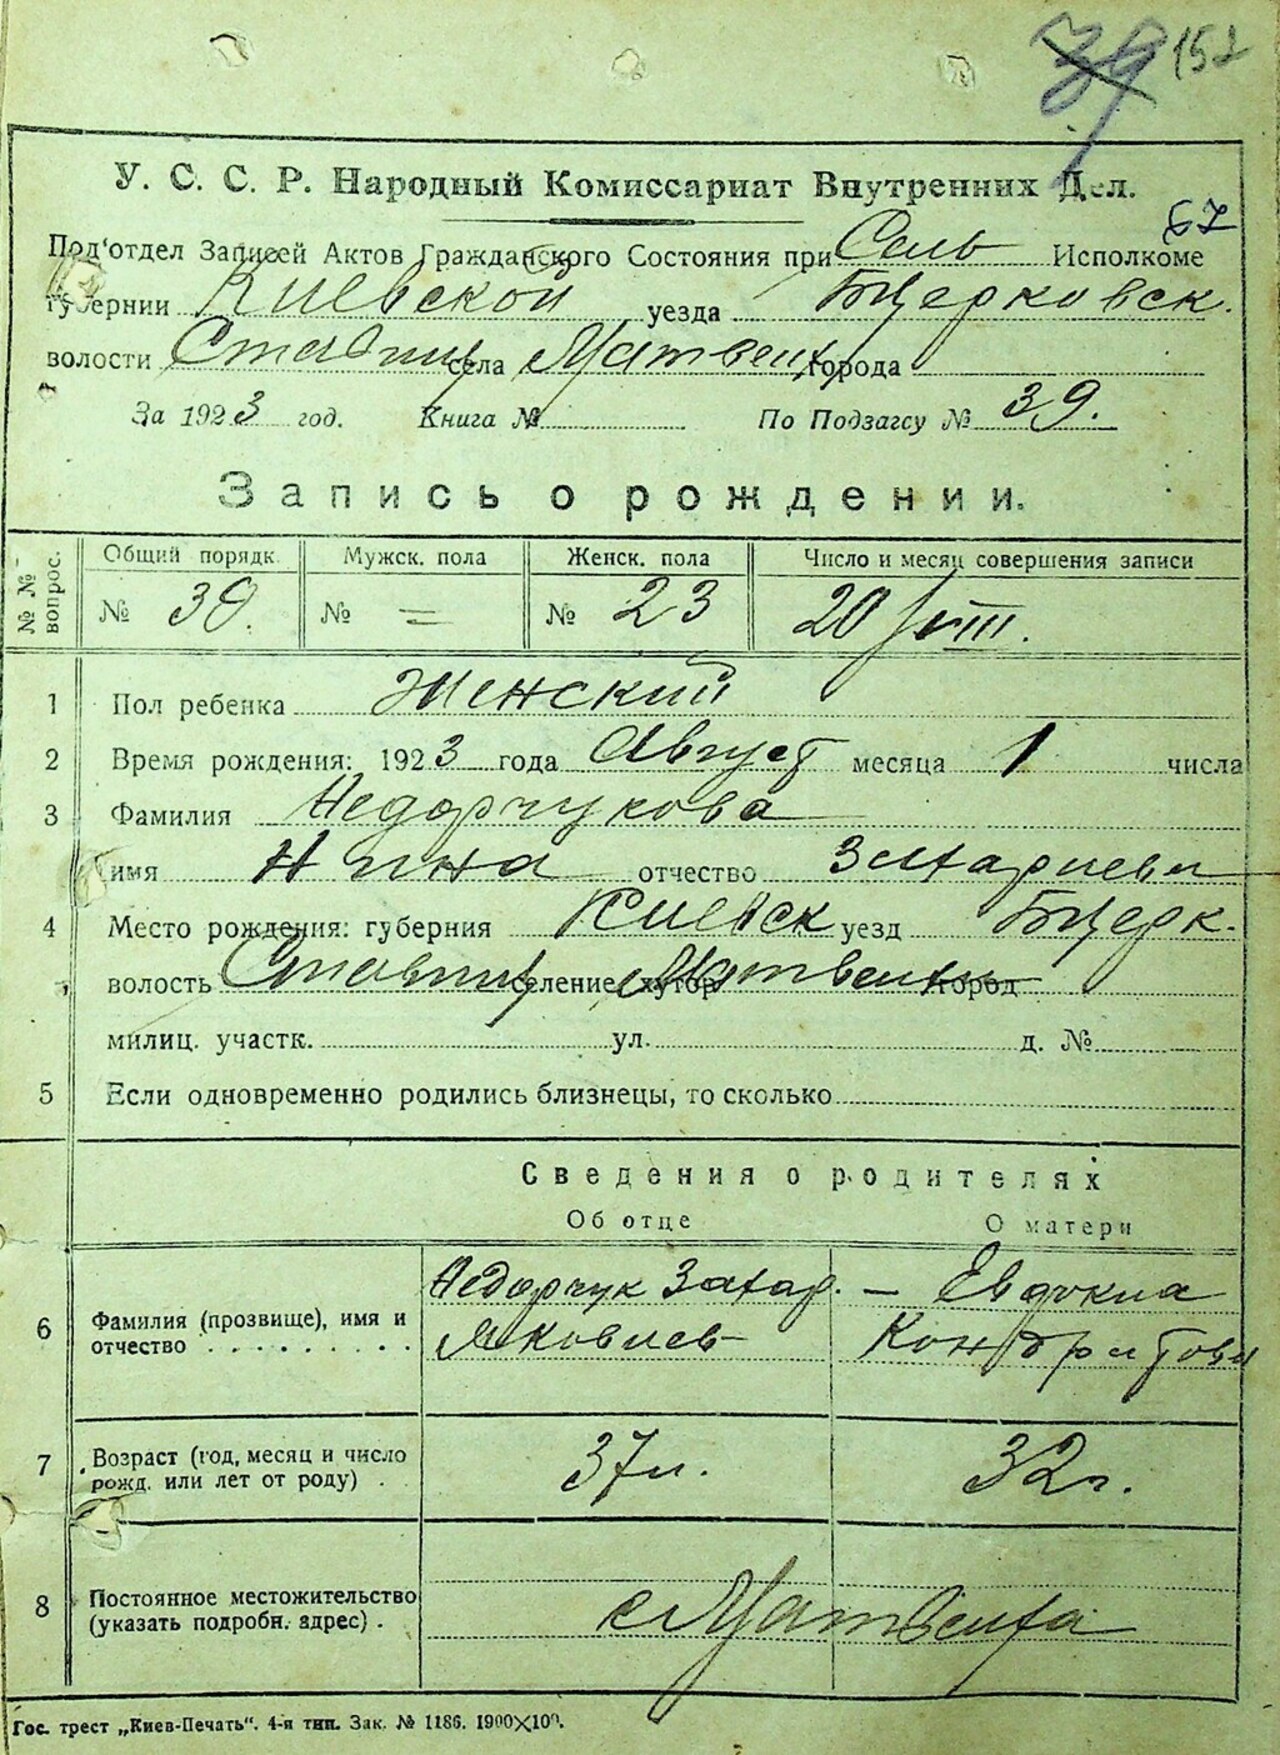 39 152
У. С. С. Р. Народный Комиссариат Внутренних Дел.
67
Под'отдел Записей Актов Гражданского Состояния при Сель Исполкоме
губернии Киевской уезда БЦерковск.
волости Ставищ села Матвеих города
За 1923 год. Книга № По Подзагсу № 39.
Запись о рождении.
№ № вопрос. Общий порядк. Мужск. пола Женск. пола Число и месяц совершения записи
№ 39. № = № 23 20/VIII.
1 Пол ребенка Женский
2 Время рождения: 1923 года Август месяца 1 числа
3 Фамилия Недорчукова
имя Нина отчество Захариевн
4 Место рождения: губерния Киевск уезд БЦерк.
волость Ставищ селение, хутор Матвеиха город
милиц. участк. ул. д. №
5 Если одновременно родились близнецы, то сколько
Сведения о родителях
Об отце О матери
6 Фамилия (прозвище), имя и отчество Недорчук Захар. Яковлев – Евдокиа Кондратовн
7 Возраст (год, месяц и число рожд. или лет от роду) 37 л. 32 г.
8 Постоянное местожительство (указать подробн. адрес). с Матвеиха
Гос. трест „Киев-Печать". 4-я тип. Зак. № 1186. 1900×100.